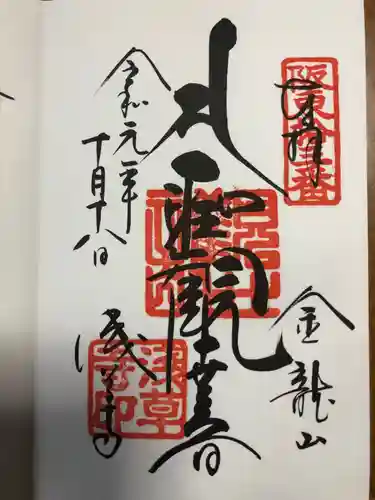 奉拝
阪東十三番
金龍山
聖觀世音
令和元年
十月十八日
浅草寺
浅草寺印